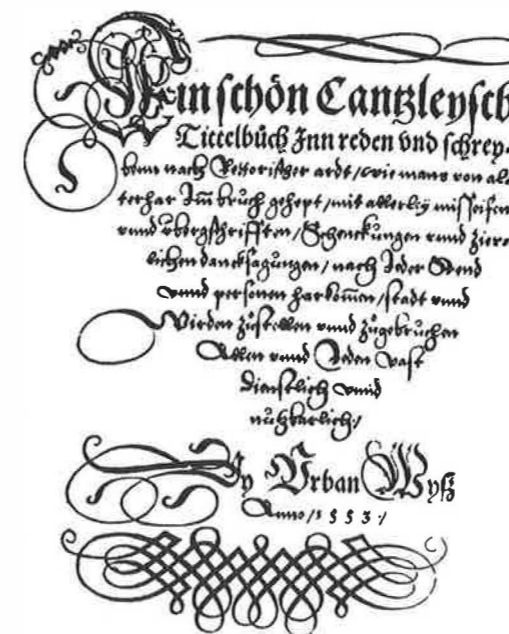 Ein schön Cantzleysch
Tittelbůch Inn reden vnd schrey-
benn nach Rettorischer ardt / wie mans von al
terhar Im̄ bruch gehept / mit allerley missifen
vnnd vbergschrifften / Schenckungen vnnd zier
lichen dancksagungen / nach Jeder Stend
vnnd personen harkom̄en / stadt vnnd
Wirden zůstellen vnnd zůgebruchen
Allen vnnd Jeden vast
dienstlich vnnd
nutzbarlich /
By Vrban Wyß
Anno / 1553 /